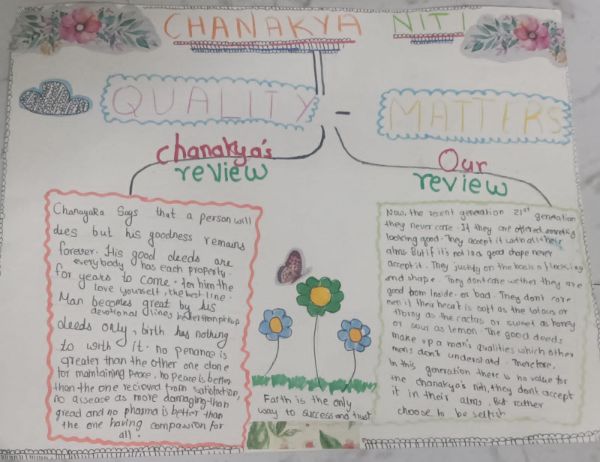 CHANAKYA NITI
QUALITY - MATTERS
Chanakya's
review
Our
review
Chanayaka Says that a person will
dies but his goodness remains
forever. His good deeds are
everybody has each property
for years to come. for him the
love yourself, the best line.
Man becomes great by his
devotional
deeds only, birth has nothing
to with it. no penance is
greater than the other one done
for maintaining peace, no peace is better
than the one recieved from satisfaction,
no disease as more damaging than
greed and no pharma is better than
the one having compassion for
all.
Faith is the only
way to success and trust
Now, the recent generation 21st generation
they never care. If they are offered something
looking good. They accept it with all their
alms. But if it's not in a good shape never
accept it. They justify on the basis of looking
and shape. They dont care wether they are
good from inside or bad. They dont care
men if their heart is soft as the
thorny as the cactus or sweet as honey
or sour as lemon. The good deeds
make up a man's qualities which other
mens don't understand. Therefore,
In this generation there is no value for
the Chanakya's niti, they dont accept
it in their alms. But rather
choose to be selfish